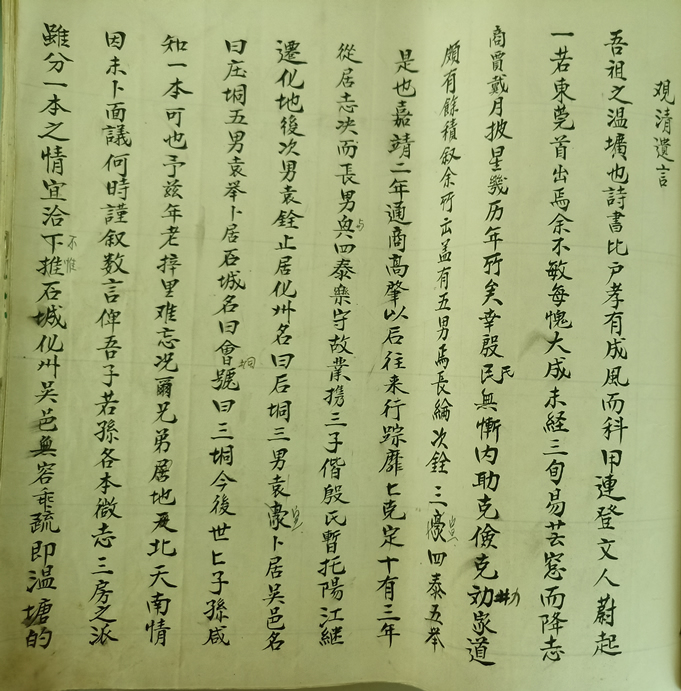 观清遺言
吾祖之温壙也詩書比户孝有成風而科甲連登文人蔚起
一若東莞首出焉余不敏每愧大成未経三旬易芸窓而降志
商賈戴月披星幾历年所矣幸殷民無慚内助克儉克効家道
頗有餘積叙余所出盖有五男焉長綸次銓三濠四泰五举
是也嘉靖二年通商高肇以后往来行踪靡匕克定十有三年
從居志决而長男與四泰樂守故業携三子偕殷氏暫托陽江継
遷化地後次男袁銓止居化州名曰后垌三男袁濠卜居吴邑名
曰庄垌五男袁举卜居石城名曰會號曰三垌今後世匕子孫咸
知一本可也予兹年老梓里难忘况爾兄弟居地友北天南情
因未卜面議何時謹叙数言俾吾子若孫各本微志三房之派
雖分一本之情宜洽下推石城化州吴邑無容乖疏即温塘的